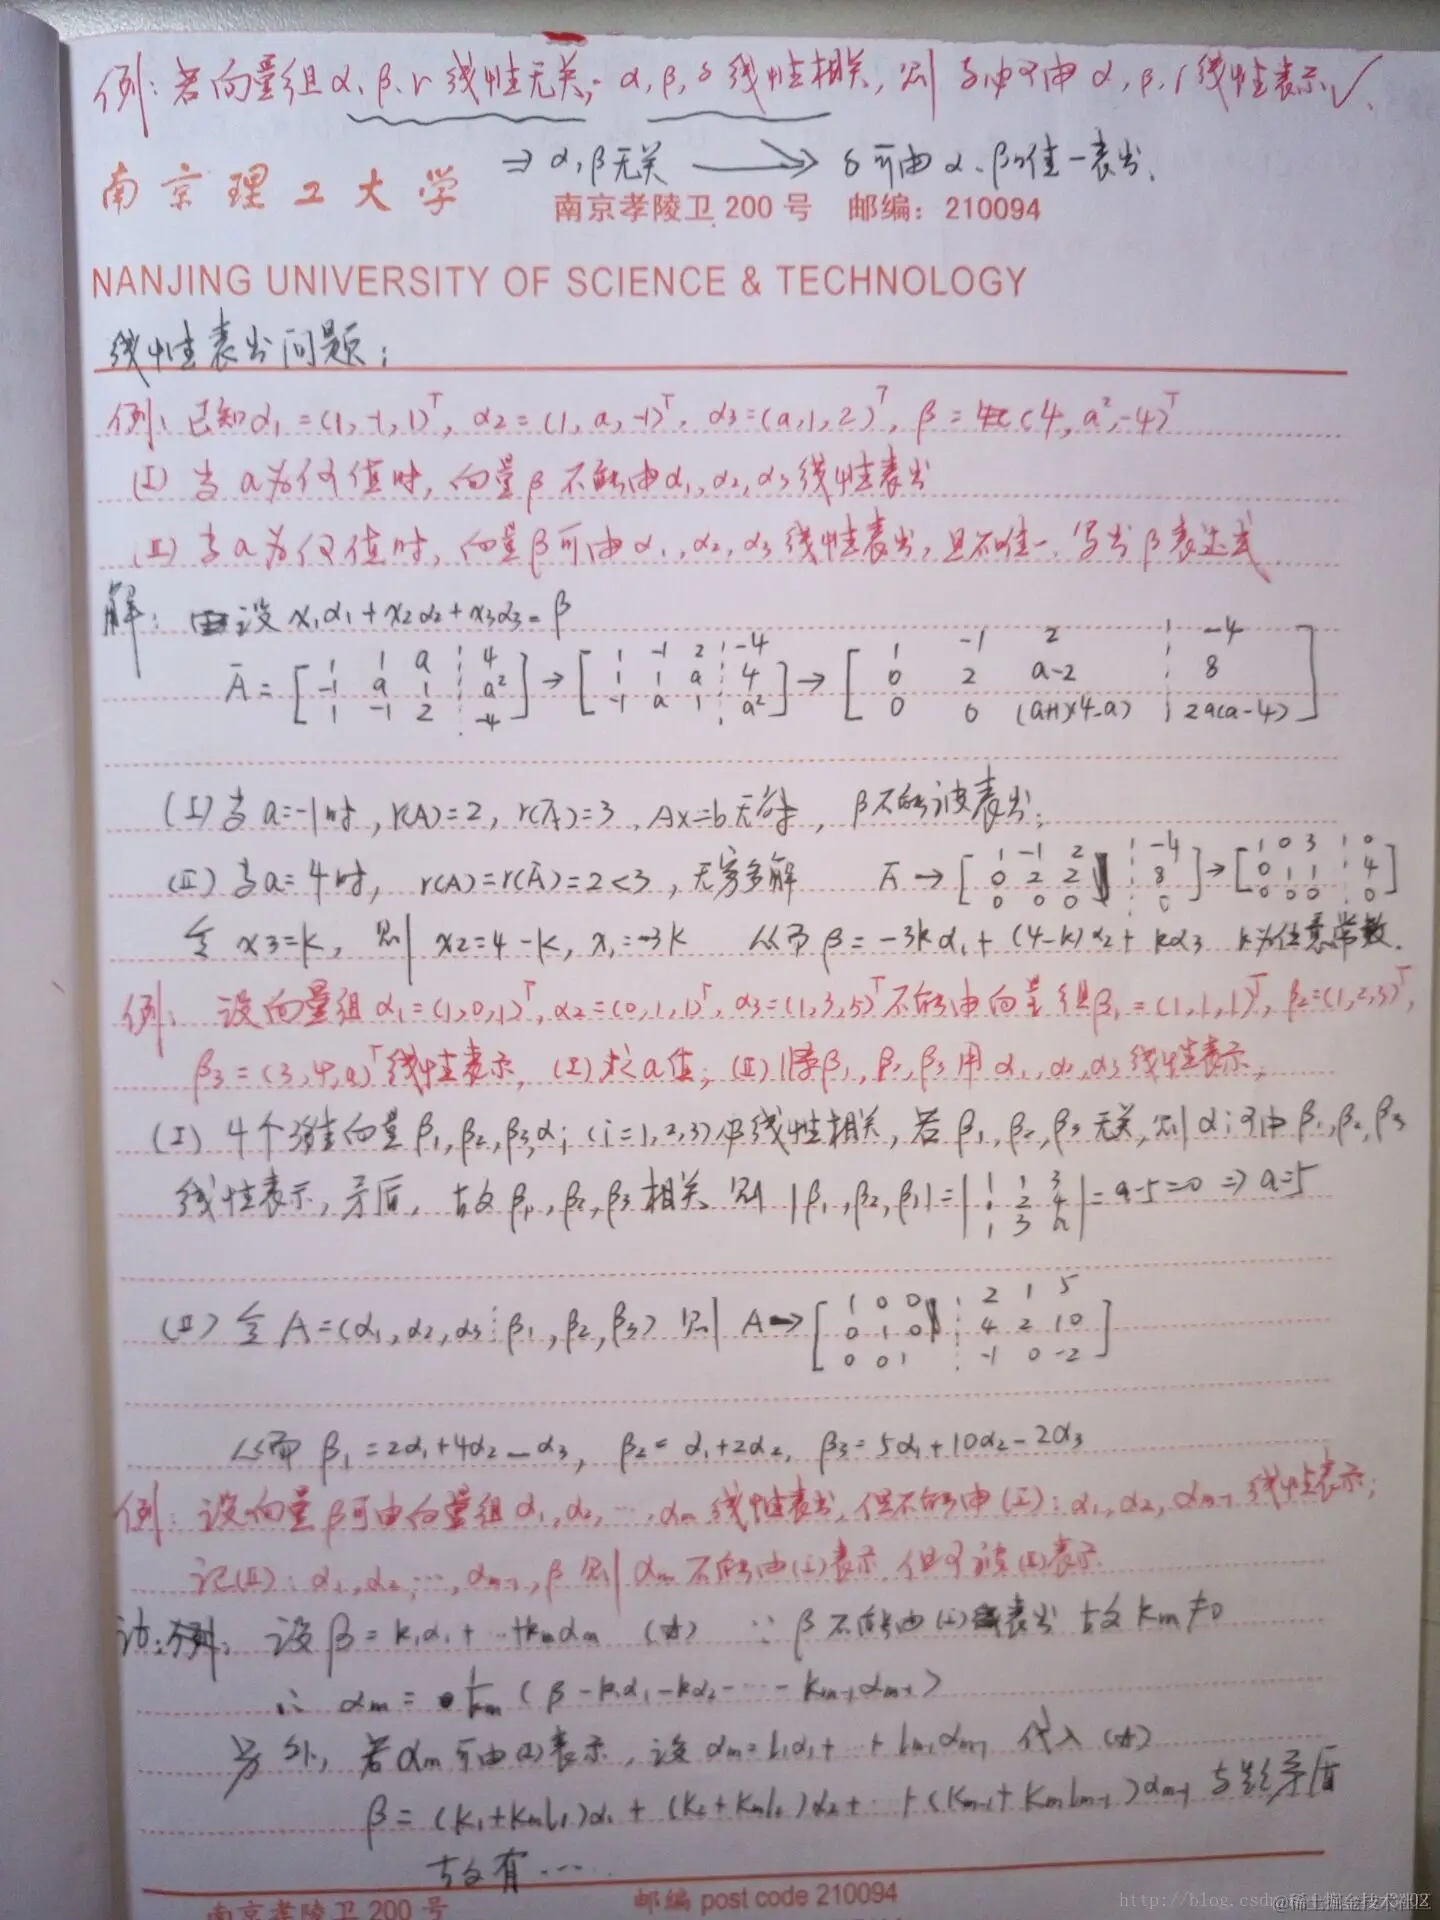 例:若向量组α,β,γ线性无关;α,β,δ线性相关,则δ必可由α,β,γ线性表示✓.
⇒ α,β无关 → δ可由α、β唯一表出.
南京理工大学 南京孝陵卫 200 号 邮编: 210094
NANJING UNIVERSITY OF SCIENCE & TECHNOLOGY
线性表出问题;
例:已知α1=(1,-1,1)^T, α2=(1,a,-1)^T, α3=(a,1,2)^T, β=(4,a²,-4)^T
(I) 当a为何值时,向量β不能由α1,α2,α3线性表出
(II) 当a为何值时,向量β可由α1,α2,α3线性表出,且不唯一,写出β表达式
解: 设x1α1+x2α2+x3α3=β
Ā = [1 1 a ⋮ 4; -1 a 1 ⋮ a²; 1 -1 2 ⋮ -4] → [1 -1 2 ⋮ -4; 1 1 a ⋮ 4; -1 a 1 ⋮ a²] → [1 -1 2 ⋮ -4; 0 2 a-2 ⋮ 8; 0 0 (a+1)(4-a) ⋮ 2a(a-4)]
(I) 当a=-1时, r(A)=2, r(Ā)=3, Ax=b无解, β不能被表出;
(II) 当a=4时, r(A)=r(Ā)=2<3, 无穷多解 Ā → [1 -1 2 ⋮ -4; 0 2 2 ⋮ 8; 0 0 0 ⋮ 0] → [1 0 3 ⋮ 0; 0 1 1 ⋮ 4; 0 0 0 ⋮ 0]
令 x3=k, 则 x2=4-k, x1=-3k 从而 β=-3kα1+(4-k)α2+kα3 k为任意常数.
例: 设向量组α1=(1,0,1)^T, α2=(0,1,1)^T, α3=(1,3,5)^T不能由向量组β1=(1,1,1)^T, β2=(1,2,3)^T,
β3=(3,4,a)^T线性表示, (I)求a值; (II)将β1,β2,β3用α1,α2,α3线性表示;
(I) 4个3维向量β1,β2,β3,αi(i=1,2,3)必线性相关,若β1,β2,β3无关,则αi可由β1,β2,β3
线性表示,矛盾,故β1,β2,β3相关 则 |β1,β2,β3|=|1 1 3; 1 2 4; 1 3 a|=a-5=0 ⇒ a=5
(II) 令 A=(α1,α2,α3⋮β1,β2,β3) 则 A → [1 0 0 ⋮ 2 1 5; 0 1 0 ⋮ 4 2 10; 0 0 1 ⋮ -1 0 -2]
从而 β1=2α1+4α2-α3, β2=α1+2α2, β3=5α1+10α2-2α3
例:设向量β可由向量组α1,α2,…,αm线性表出,但不能由(I):α1,α2,αm-1线性表示;
记(II): α1,α2,…,αm-1,β 则αm不能由(I)表示,但可被(II)表示.
设β=k1α1+…+kmαm (☆) ∵ β不能由(I)表出 故km≠0
∴ αm = 1/km (β-k1α1-kα2-…-km-1αm-1)
另外, 若αm可由(I)表示, 设αm=l1α1+…+lm-1αm-1 代入(☆)
β=(k1+kml1)α1+(k2+kml2)α2+…+(km-1+kmlm-1)αm-1 与题矛盾
故有…
南京孝陵卫 200 号 邮编 post code 210094
http://blog.csdn
@稀土掘金技术社区